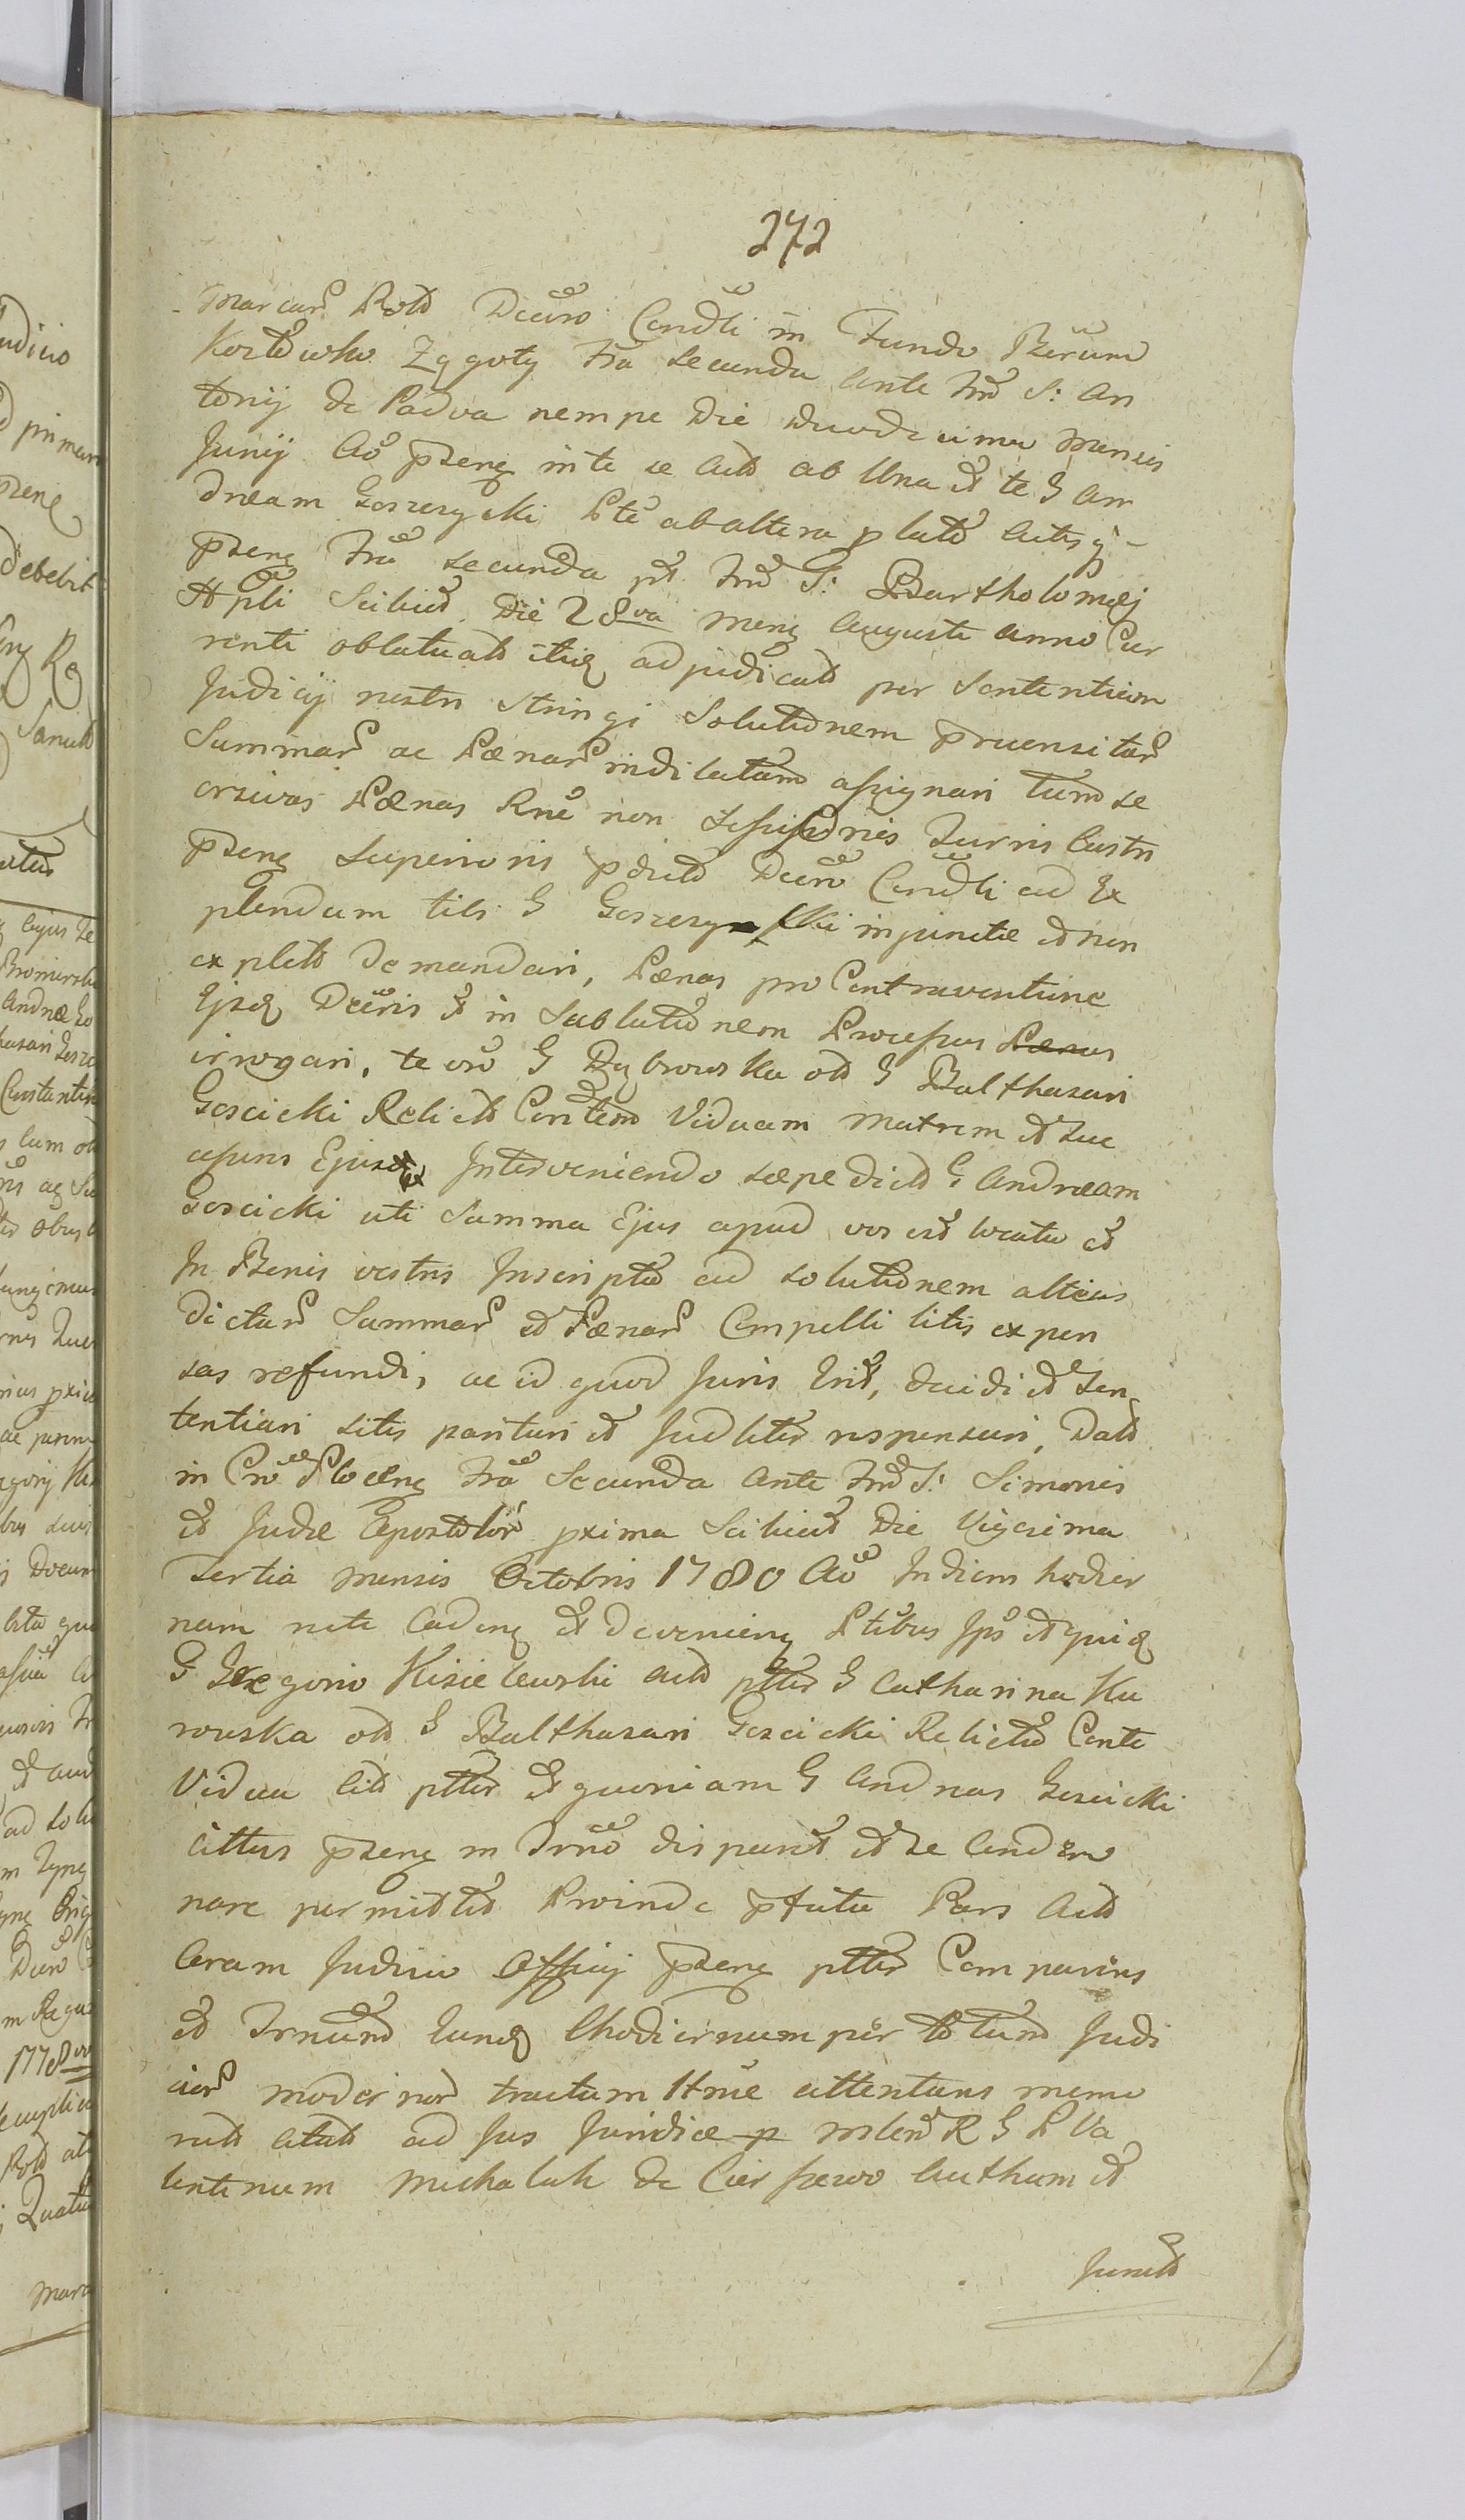 272
Marcar Rott Decro Condli in Fundo Bonum
Kozłowko Zygoty fra secunda ante fm S: An
tonij de Padva nempe Die duodecima Mensis
Junij Ao pseng inte se Actt ab Una et te G An
dream Goszczycki Pte ab altera p latt Actisq
pseng fra secunda pt fm S: Bartholomæj
Appli Scilicet Die 28va Mens Augusti anno Cur
renti oblatuatt itiq adjudicatt per Sententiam
Judicij nostri stringi Solutionem provensitar
Summar ac Pænar indilatam assignari tum se
orsivas Pænas Rne non Turris Castri
pseng Superioris pdictt Decro Condli ad Ex
plendum tibi G Goszczycki injunctæ et non
explett demandari, Pænas pro Contraventione
Ejsq Decris et in Sublationem Processus Pænas
irrogari, te vro G Dybrowska ott G Balthasari
Goscicki Relictt Contem Viduam Matrem et Suc
cessores Ejusq Interveniendo sæpe dictt G Andream
Goscicki uti Summa Ejus apud vos est locata et
In Bonis vestris Inscripta ad solutionem alteius
dictar Summar et Pænar Compelli litis expen
sas refundi, ac id quod Juris Erit, decidi et Sen
tentiari sitis parituri et Judliter responsuri, Datt
in Cro Płocens fra Secunda Ante fm S: Simonis
et Judæ Apostolor pxima Scilicet Die Vigesima
Tertia Mensis Octobris 1780 Ao In diem hodier
nam rite Caden et devenien Ptibus Ips et quiq
G Gregorio Kisielewski actt ptter G Catharina Ku
rowska ott G Balthasari Goscicki Relictt Conte
Vidua Citt ptter et quoniam G Andreas Goscicki
Cittus pseng in Trno disparet et se Condem
nare permittit Proinde pfata Pars Actt
Coram Judicio Officij pseng ptter Comparens
et Trnum hunq hodiernum per totum Judi
cior modernor tractum Hrne attentans memo
ratt Citatt ad Jus Juridice p mlem R G P Va
lentinum Michalak de Cierszewo Authum et
Junctt